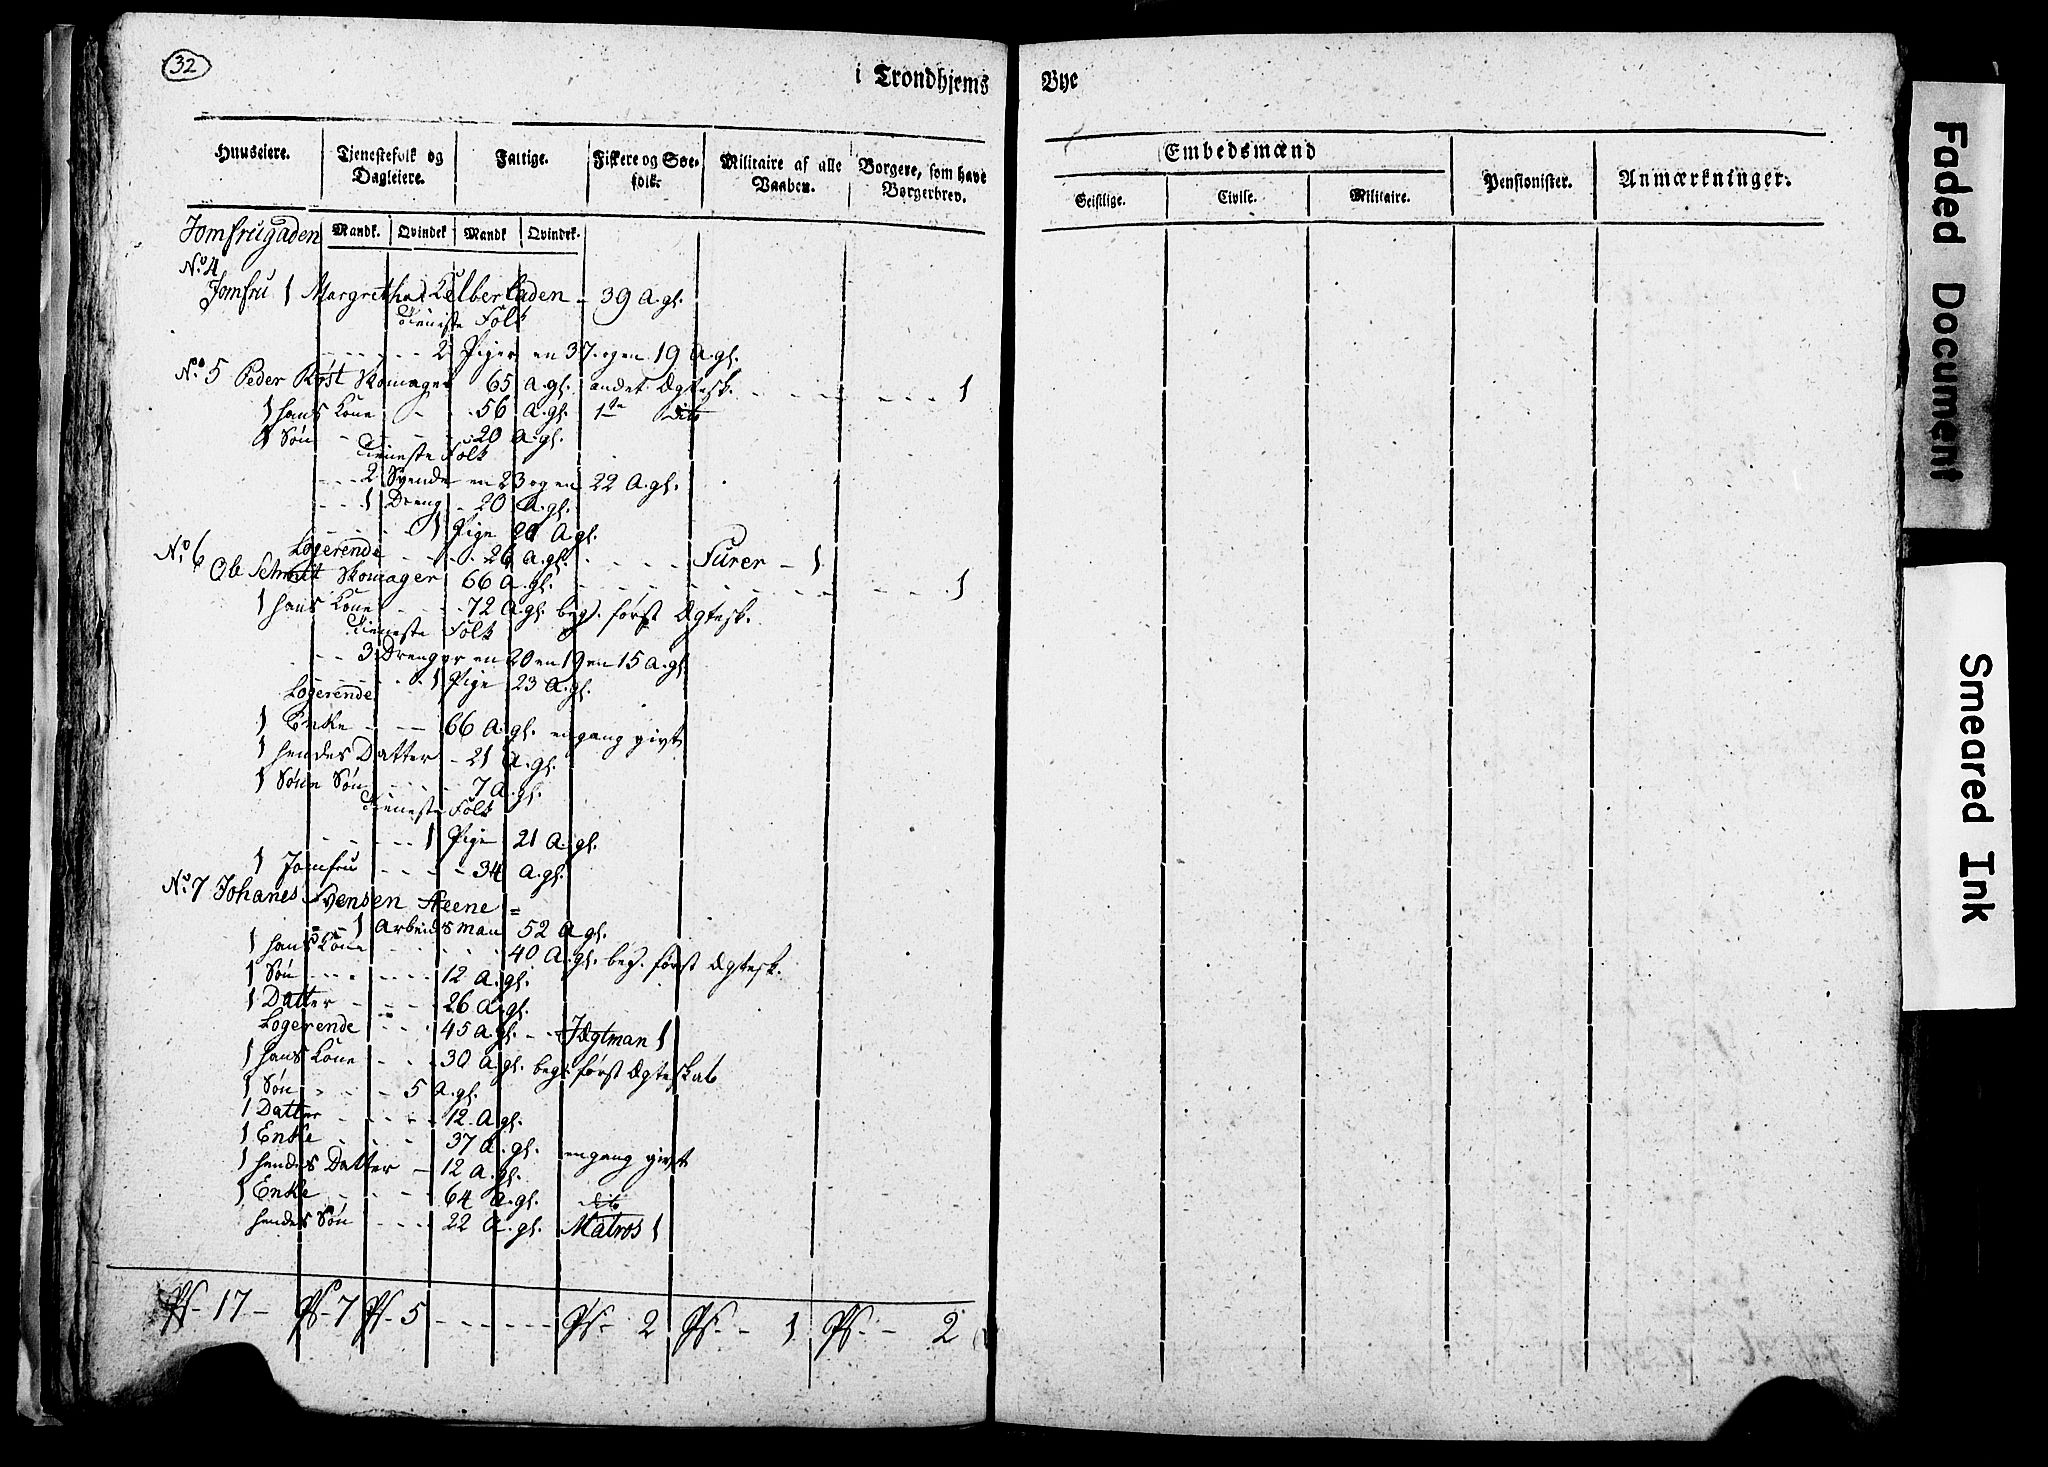 32
i Trondhjems Bye
Huuseiere. Tjenestefolk og Dagleiere. Fattige. Fiskere og Søe-folk. Militaire af alle Vaaben. Borgere, som have Borgerbrev. Embedsmænd Pensionister. Anmærkninger.
Geistlige. Civile. Militaire.
Mandk. Qvindek Mandk Qvindek.
Jomfrugaden
No. 4
Jomfru 1 Margretha - 39 A. gl.
Tieneste Folk
2 Piger en 37. og en 19 A. gl.
No. 5 Peder Røst Skomager 65 A. gl. andet Ægtesk. 1
1 hans Kone - - 56 A. gl. 1te dito
1 Søn - - - 20 A. gl.
Tieneste Folk
2 Svende en 23 og en 22 A. gl.
1 Dreng - 20 A. gl.
1 Pige 20 A. gl.
Logerende - - - 26 A. gl. Furer - 1
No. 6 Ole Schmit Skomager 66 A. gl. 1
1 hans Kone - - - 72 A. gl. beg. først Ægtesk.
Tieneste Folk
3 Drenger en 20 en 19 en 15 A. gl
1 Pige 23 A. gl.
Logerende
1 Enke - - - 66 A. gl. engang givt
1 hendes Datter - 21 A. gl.
1 Sønne Søn - - - 7 A. gl.
Tieneste Folk
1 Pige 21 A. gl.
1 Jomfru - - - - 34 A. gl.
No. 7 Johanes Svensen Steene =
1 Arbeidsman 52 A. gl.
1 hans Kone - - - 40 A. gl. beg. først Ægtesk.
1 Søn - - - - - 12 A. gl.
1 Datter - - - - 26 A. gl.
Logerende - - - 45 A. gl. - - Jægtman 1
1 hans Kone - - 30 A. gl. beg. først Ægteskab
1 Søn - - - - 5 A. gl.
1 Datter - - - - 12 A. gl.
1 Enke - - - - 37 A. gl. engang givt
1 hendes Datter - 12 A. gl.
1 Enke - - - - 64 A. gl. dito
hendes Søn - - - 22 A. gl. Matros 1
Ps. - 17 - Ps. - 7 Ps. - 5 - - - - - - Ps. - 2 Ps. - 1 Ps. - 2
Faded Document
Smeared Ink